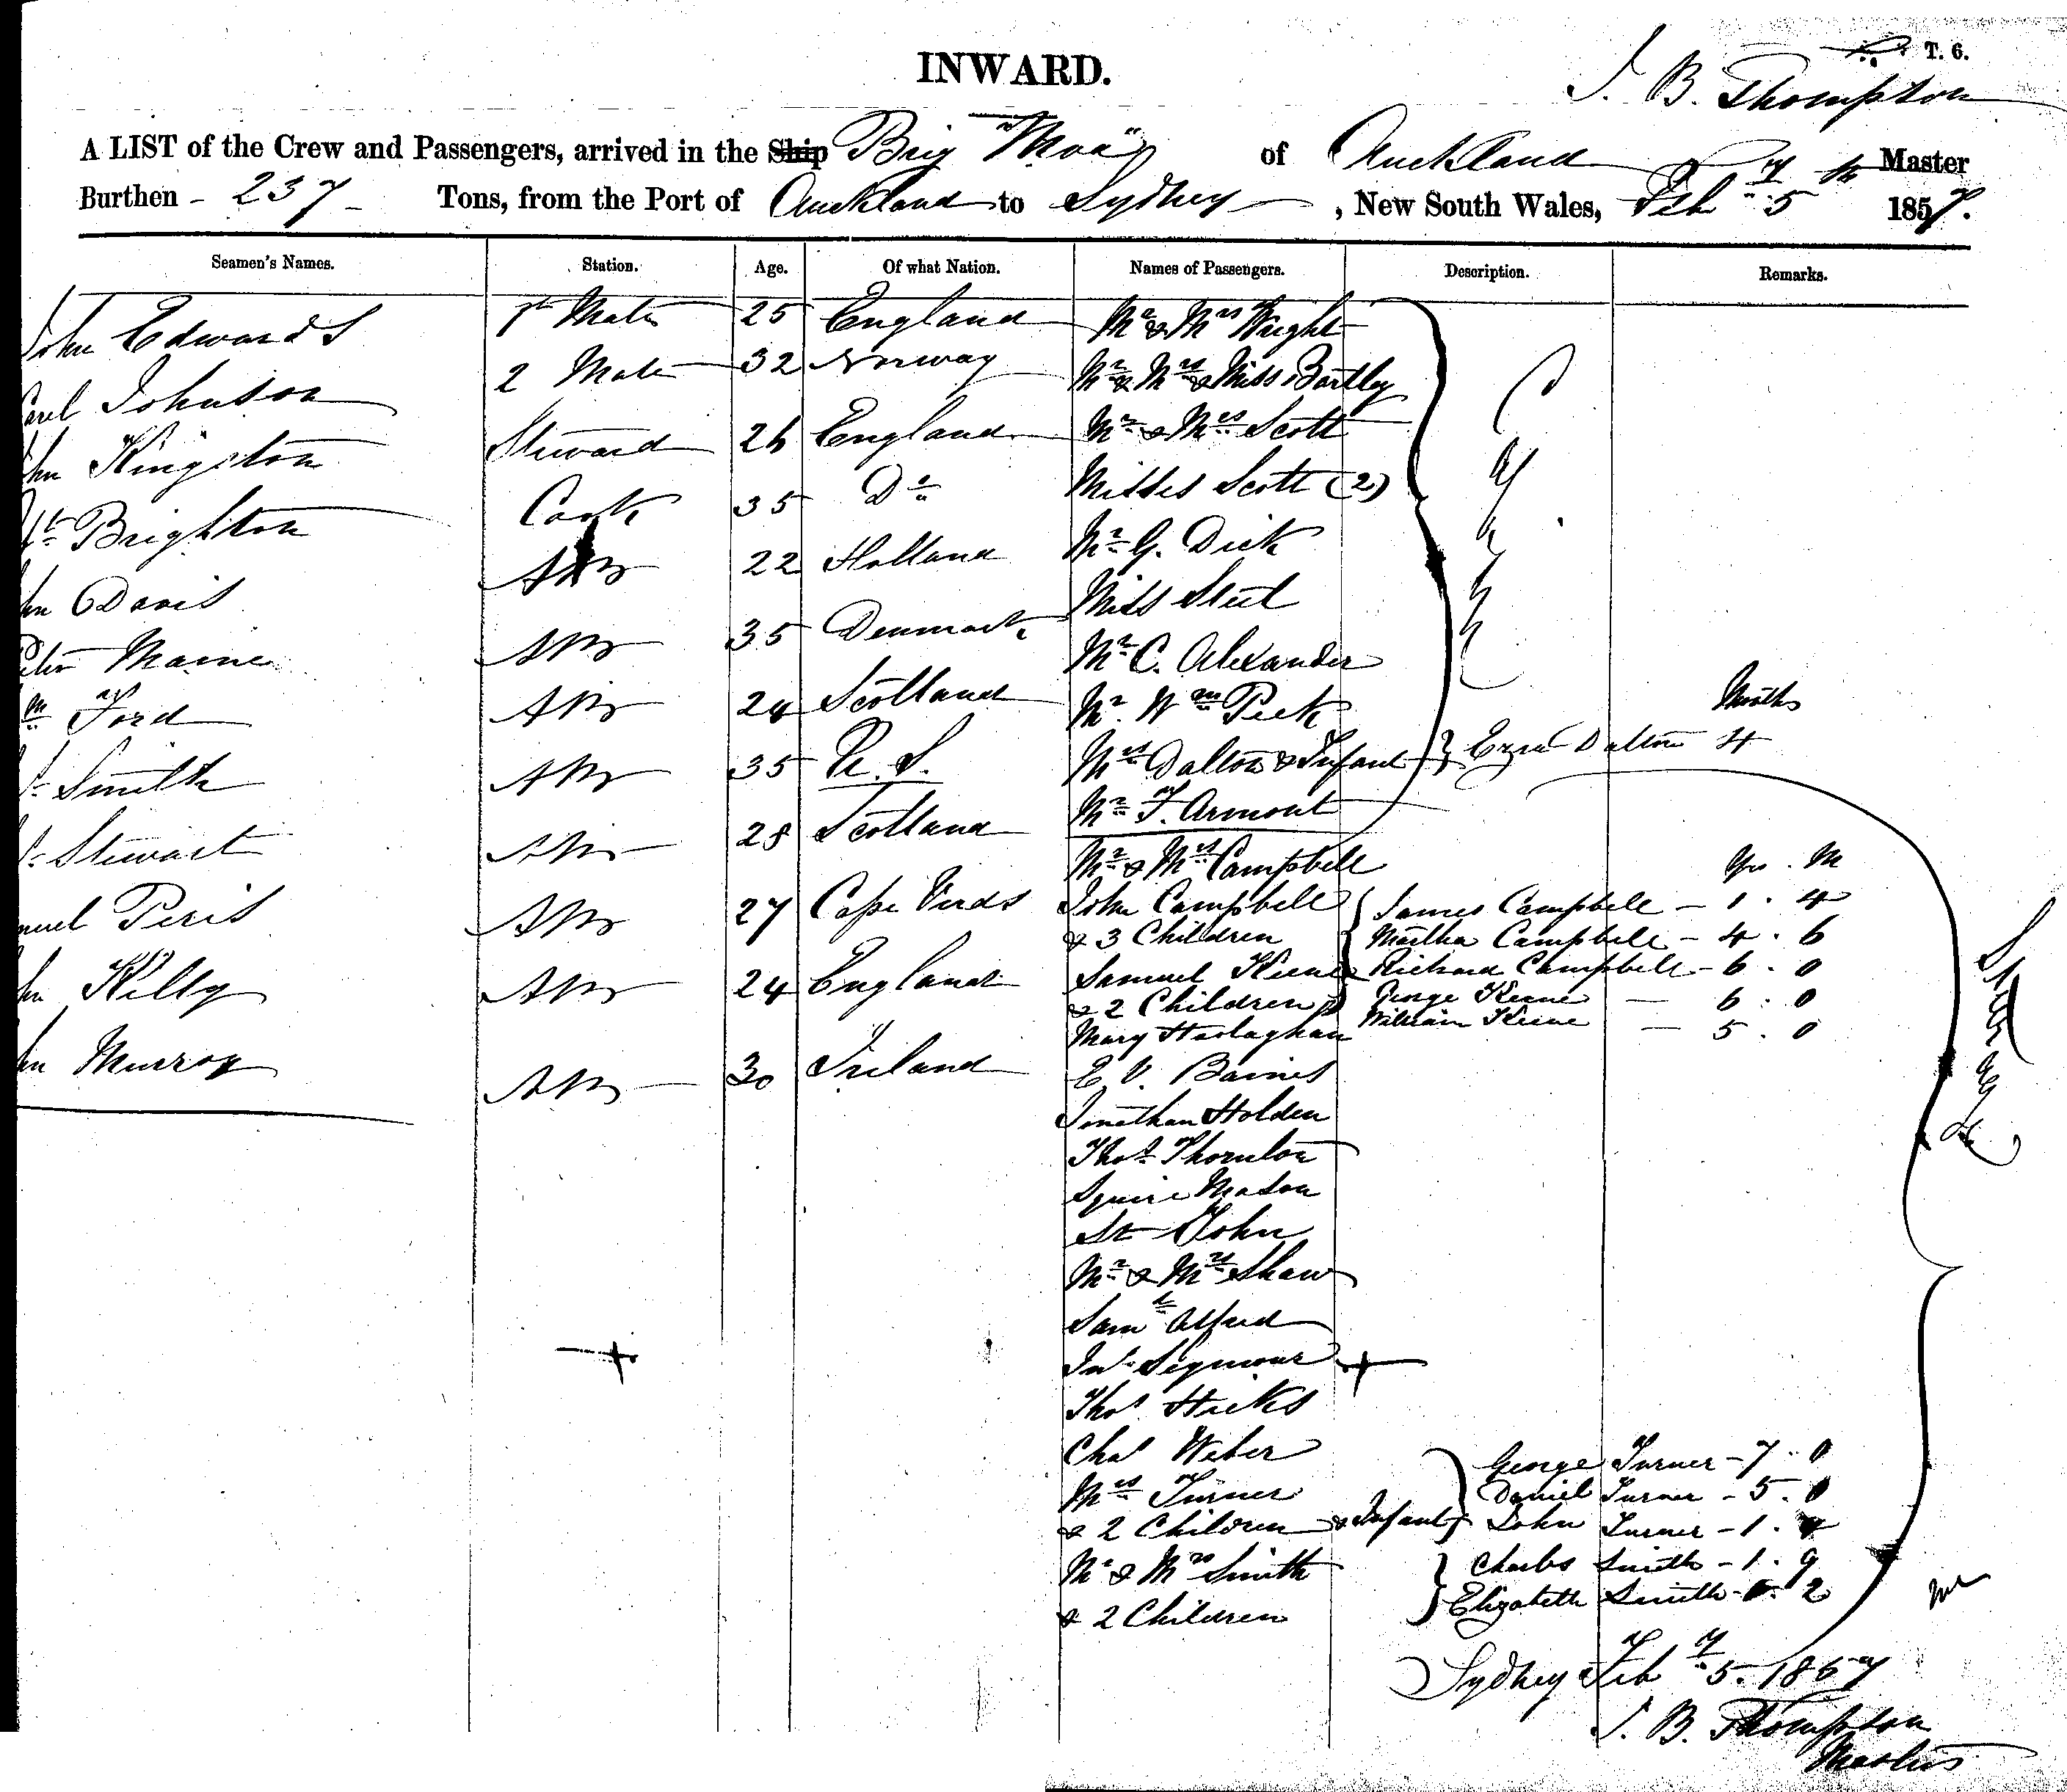 INWARD.
T. 6.
J. B. Thompson
A LIST of the Crew and Passengers, arrived in the Ship Brig "Moa" of Auckland Master
Burthen - 237 - Tons, from the Port of Auckland to Sydney, New South Wales, Feby 5th 1857.
Seamen's Names. Station. Age. Of what Nation. Names of Passengers. Description. Remarks.
John Edwards 1st Mate 25 England Mr & Mrs Wright
Johnson 2 Mate 32 Norway Mr & Mrs & Miss Bartley
hn Kingston Steward 26 England Mr & Mrs Scott
Brighton Cook 35 Do Misses Scott (2)
hn Davis AB 22 Holland Mr G. Dick
Peter Maine AB 35 Denmark Miss Steel
m Ford AB 24 Scotland Mr C. Alexander
Smith AB 35 U. S. Mr Wm Peek
Stewart AB 28 Scotland Mrs Dalton & Infant } Ezra Dalton 4 Months
muel Peris AB 27 Cape Verds Mr F. Armont
hn Killy AB 24 England Mr & Mrs Campbell
hn Murray AB 30 Ireland
Yrs. M
John Campbell { James Campbell - 1 . 4
& 3 Children { Martha Campbell - 4 . 6
Samuel Keene Richard Campbell - 6 . 0
& 2 Children } George Keene - 6 . 0
Mary William Keene - 5 . 0
E. V. Baines
Jonathan Holden
Thos Thornton
Squire Mason
St John
Mr & Mrs Shaw
Saml Alfred
Jno Seymour
Thos Hicks
Chas Weber
Mrs Turner } George Turner - 7 . 0
& 2 Children & Infant } Daniel Turner - 5 . 0
John Turner - 1 .
Mr & Mrs Smith } Charles Smith - 1 . 9
& 2 Children } Elizabeth Smith - 0 . 2
Steerage
Sydney Feby 5. 1857
J. B. Thompson
Master